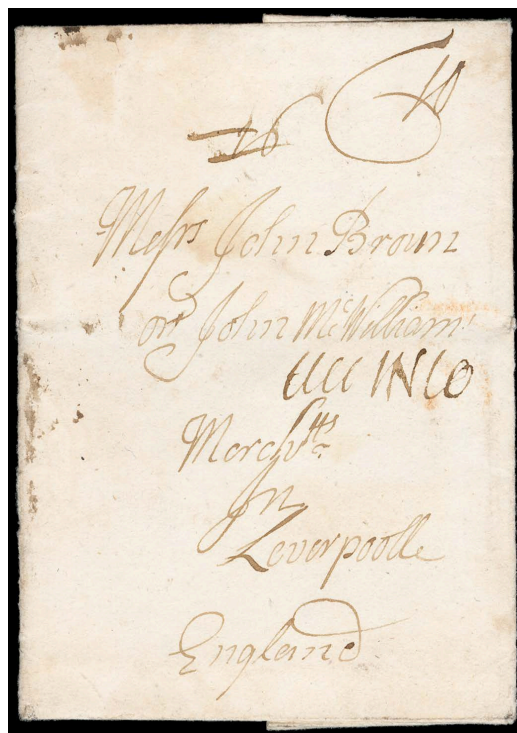 Messrs John Brown
or John McWilliam
Merchtts
In
Leverpoolle
England